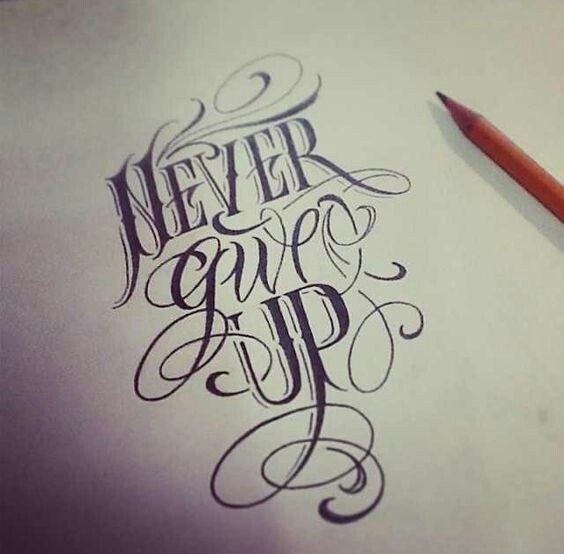 NEVER
give
UP